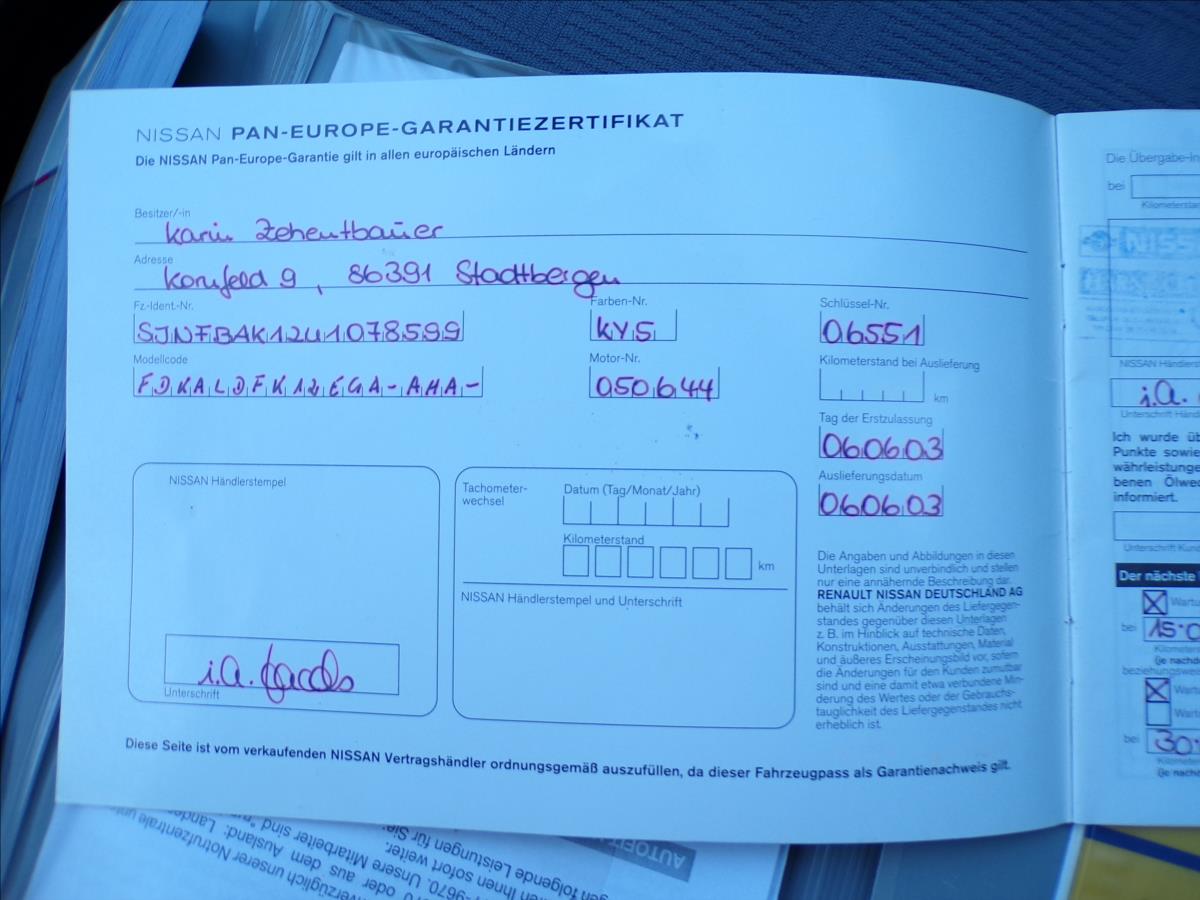 NISSAN PAN-EUROPE-GARANTIEZERTIFIKAT
Die NISSAN Pan-Europe-Garantie gilt in allen europäischen Ländern
Besitzer/-in
Karin Zehentbauer
Adresse
Kornfeld 9, 86391 Stadtbergen
Fz.-Ident.-Nr.
SJNFBAK12U1078599
Farben-Nr.
KY5
Schlüssel-Nr.
06551
Modellcode
FDKALDFK12EGA-AHA-
Motor-Nr.
050644
Kilometerstand bei Auslieferung
km
Tag der Erstzulassung
060603
Auslieferungsdatum
060603
NISSAN Händlerstempel
i.A.
Unterschrift
Tachometer-
wechsel
Datum (Tag/Monat/Jahr)
Kilometerstand
km
NISSAN Händlerstempel und Unterschrift
Die Angaben und Abbildungen in diesen
Unterlagen sind unverbindlich und stellen
nur eine annähernde Beschreibung dar.
RENAULT NISSAN DEUTSCHLAND AG
behält sich Änderungen des Liefergegen-
standes gegenüber diesen Unterlagen
z. B. im Hinblick auf technische Daten,
Konstruktionen, Ausstattungen, Material
und äußeres Erscheinungsbild vor, sofern
die Änderungen für den Kunden zumutbar
sind und eine damit etwa verbundene Min-
derung des Wertes oder der Gebrauchs-
tauglichkeit des Liefergegenstandes nicht
erheblich ist.
Diese Seite ist vom verkaufenden NISSAN Vertragshändler ordnungsgemäß auszufüllen, da dieser Fahrzeugpass als Garantienachweis gilt.
Die Übergabe-In
bei
Kilometerstan
NISS
NISSAN Händlerst
i.A.
Unterschrift Händ
Ich wurde üb
Punkte sowie
währleistunge
benen Ölwec
informiert.
Unterschrift Kund
Der nächste
Wartu
bei 15.0
Kilometerst
(je nachd
beziehungsweis
Wartu
Wartu
bei 30.
Kilometerst
(je nachd
AUTOFI
gen folgende Leistungen für Sie:
Ihnen sofort weiter.
9670. Unsere Mitarbeiter sind
oder aus dem Ausland: Landes
verzüglich unserer Notrufzentrale unte